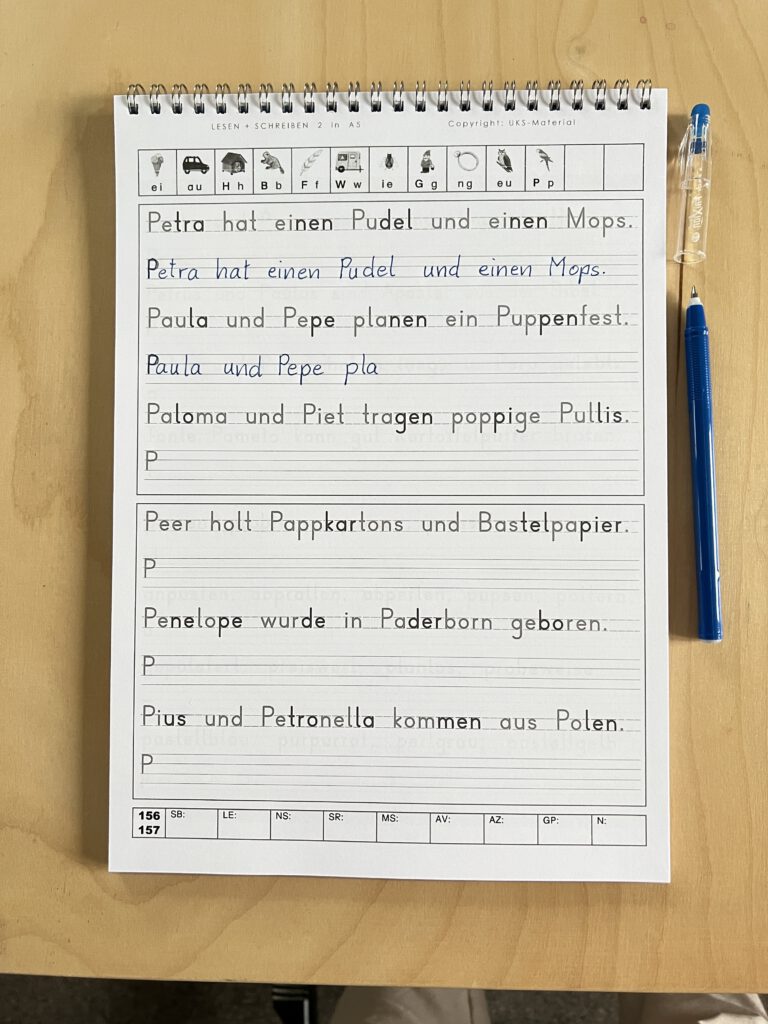 LESEN + SCHREIBEN 2 in A5 Copyright: UKS-Material
ei au H h B b F f W w ie G g ng eu P p
Petra hat einen Pudel und einen Mops.
Petra hat einen Pudel und einen Mops.
Paula und Pepe planen ein Puppenfest.
Paula und Pepe pla
Paloma und Piet tragen poppige Pullis.
P
Peer holt Pappkartons und Bastelpapier.
P
Penelope wurde in Paderborn geboren.
P
Pius und Petronella kommen aus Polen.
P
156 SB: LE: NS: SR: MS: AV: AZ: GP: N:
157